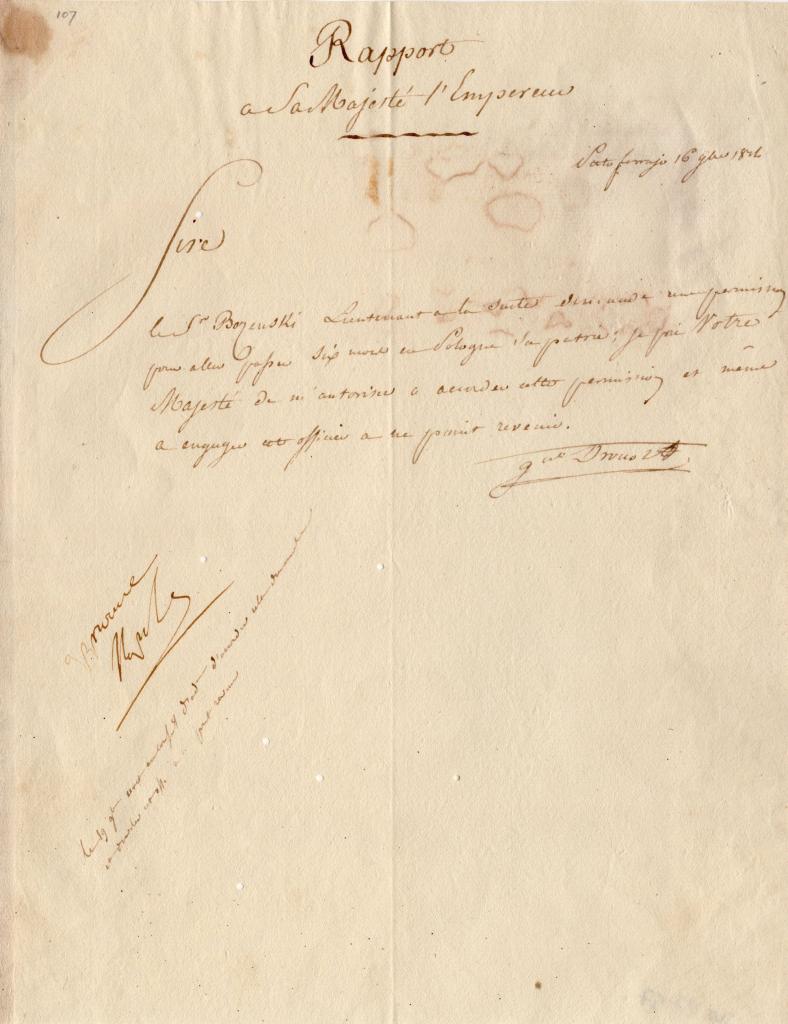 107
Rapport
a Sa Majesté l'Empereur
Porto ferrajo 16 9bre 1814
Sire
le Sr Bozenski Lieutenant a la suite demande une permission
pour aller passer six mois en Pologne sa patrie; je prie Votre
Majesté de m'autoriser a accorder cette permission et même
a engager cet officier a ne point revenir.
gal Drouot
approuvé
Nap
le 19 9bre